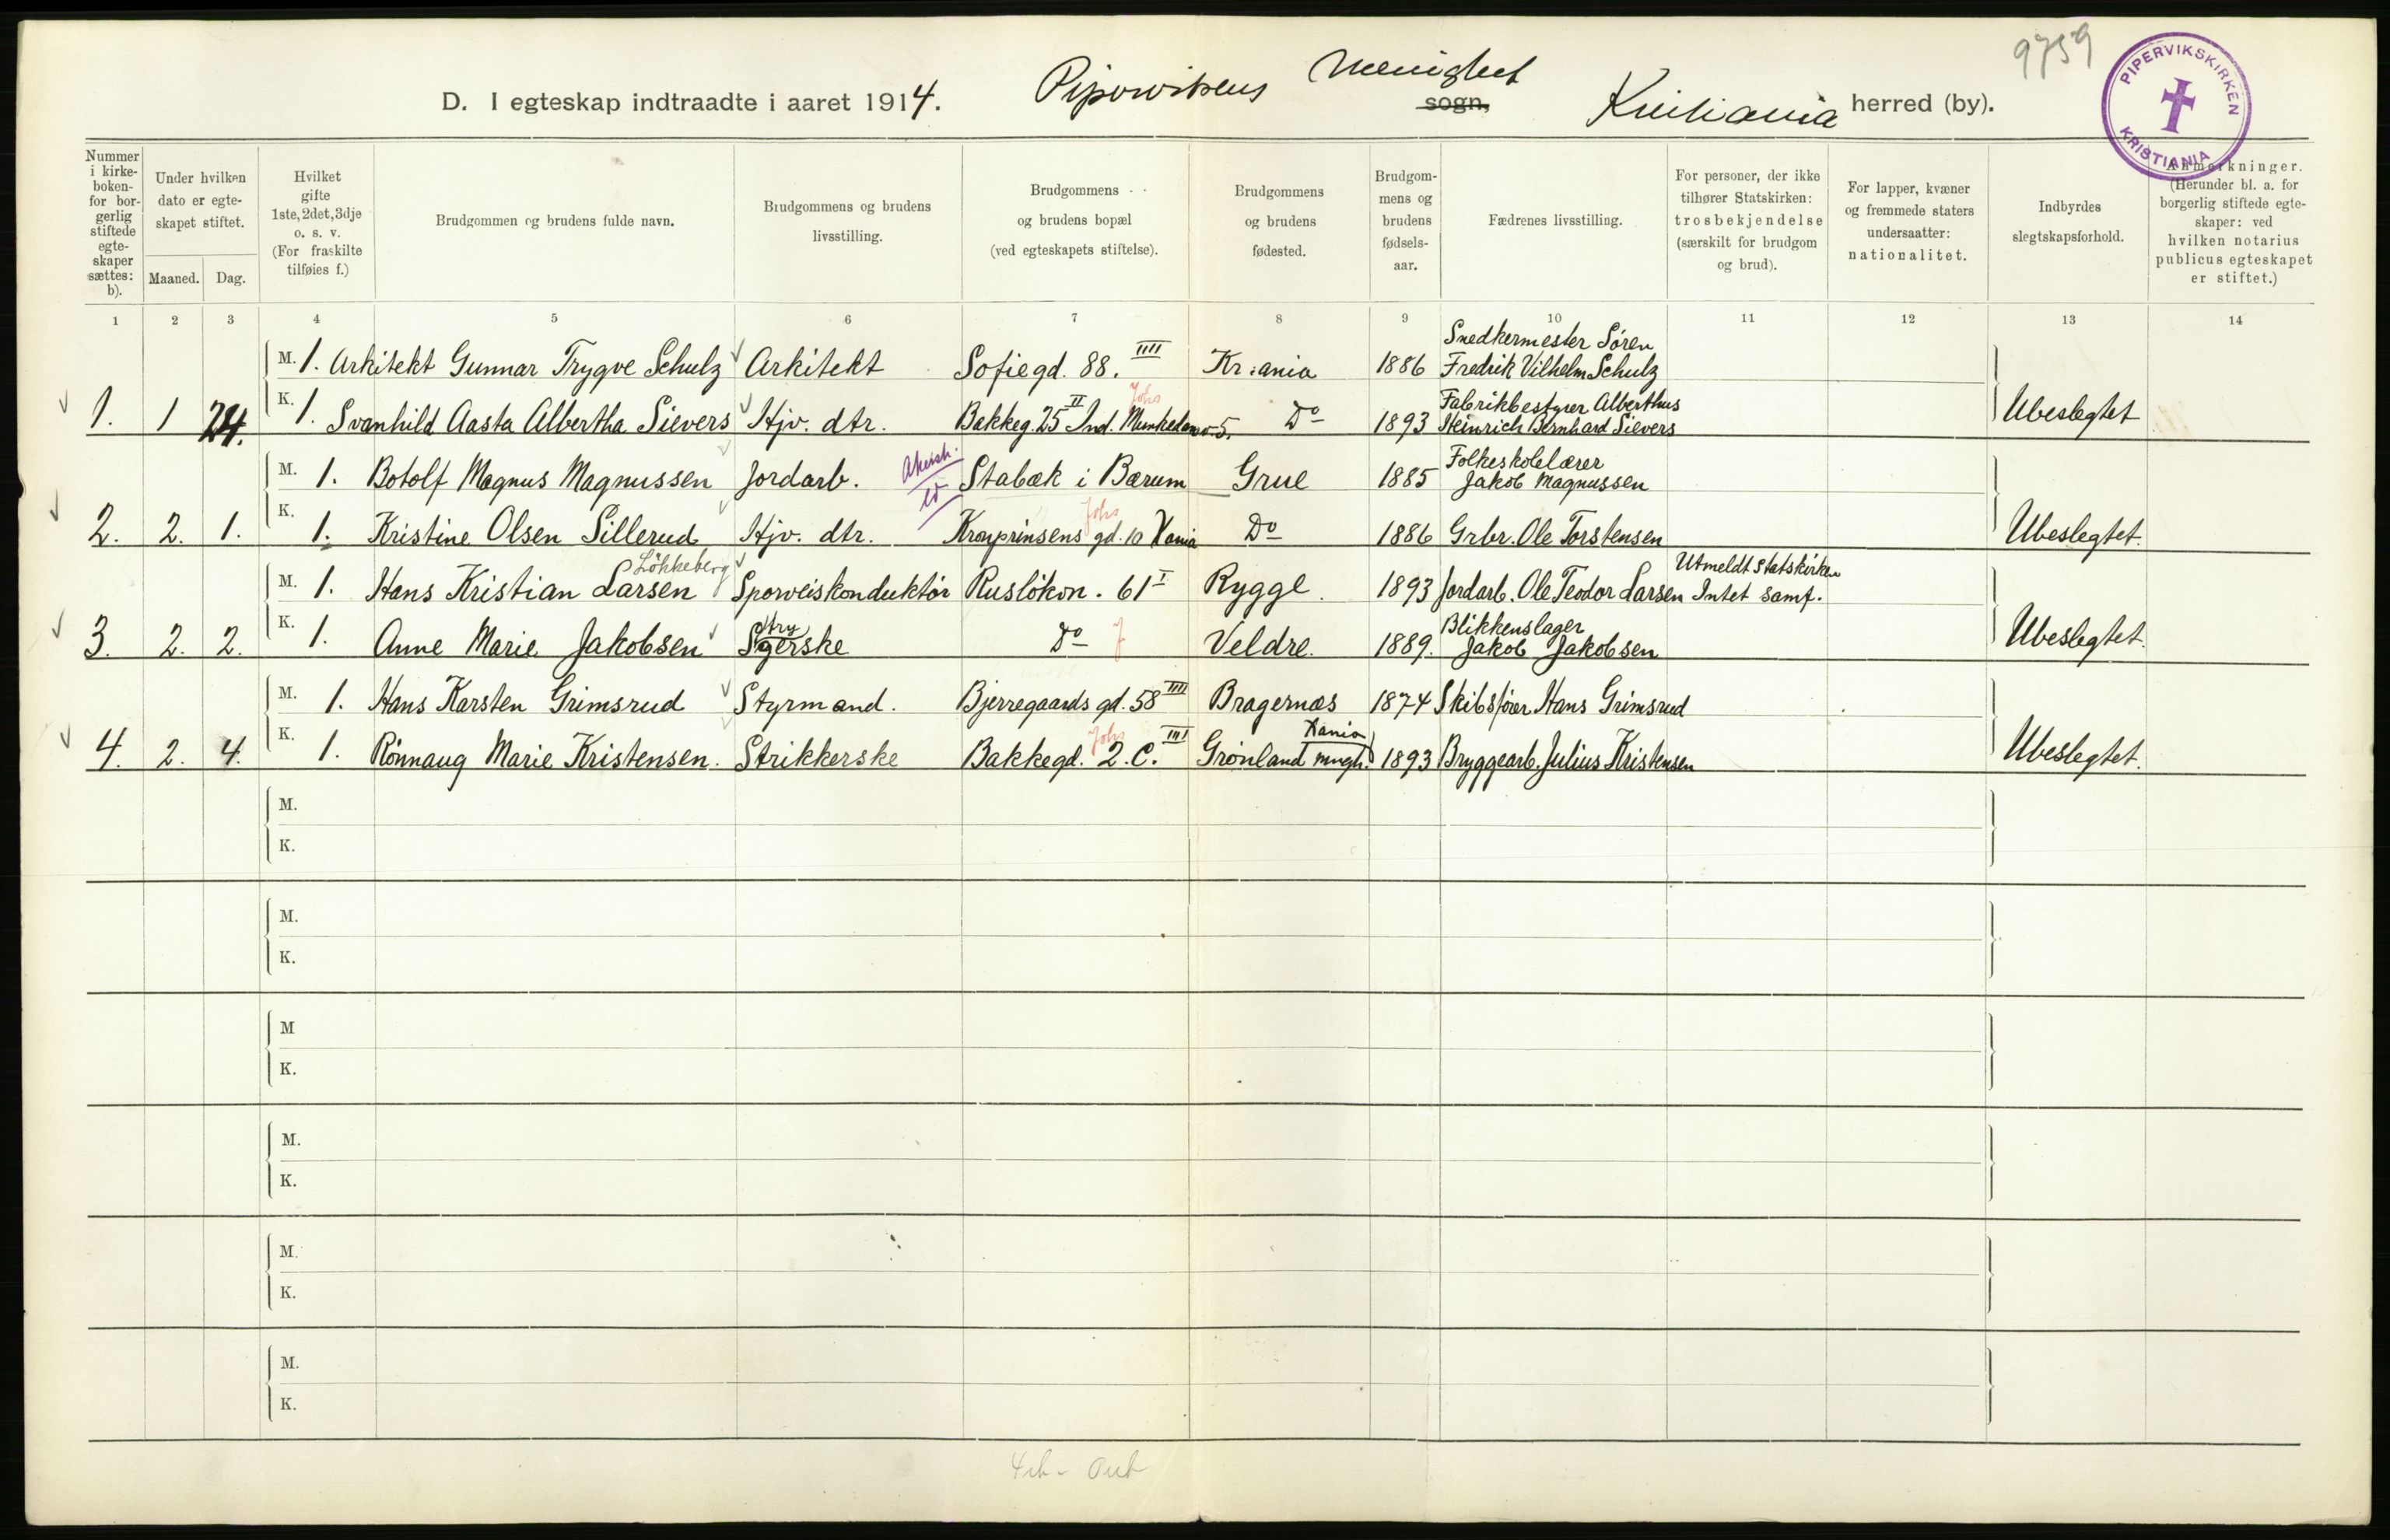 9759
PIPERVIKSKIRKEN KRISTIANIA
D. I egteskap indtraadte i aaret 1914. Pipervikens Menighet sogn, Kristiania herred (by).
Nummer i kirke-boken- for bor-gerlig stiftede egte-skaper sættes: b).
Under hvilken dato er egte-skapet stiftet.
Maaned. Dag.
Hvilket gifte 1ste, 2det, 3dje o. s. v. (For fraskilte tilføies f.)
Brudgommen og brudens fulde navn.
Brudgommens og brudens livsstilling.
Brudgommens og brudens bopæl (ved egteskapets stiftelse).
Brudgommens og brudens fødested.
Brudgom-mens og brudens fødsels-aar.
Fædrenes livsstilling.
For personer, der ikke tilhører Statskirken: trosbekjendelse (særskilt for brudgom og brud).
For lapper, kvæner og fremmede staters undersaatter: nationalitet.
Indbyrdes slegtskapsforhold.
Anmerkninger. (Herunder bl. a. for borgerlig stiftede egte-skaper: ved hvilken notarius publicus egteskapet er stiftet.)
1 2 3 4 5 6 7 8 9 10 11 12 13 14
M. 1. Arkitekt Gunnar Trygve Schulz Arkitekt Sofiegd. 88. IIII Kr:ania 1886 Snedkermester Søren Fredrik Vilhelm Schulz
1. 1 24. K. 1. Svanhild Aasta Albertha Sievers Hjv. dtr. Bakkeg. 25 II Ind. Munkedamsv 5. Johs Do 1893 Fabrikbestyrer Alberthus Heinrich Bernhard Sievers Ubeslegtet
M. 1. Botolf Magnus Magnussen Jordarb. Akersh. Stabæk i Bærum Grue 1885 Folkeskolelærer Jakob Magnussen
2. 2. 1. K. 1. Kristine Olsen Sillerud Hjv. dtr. Kronprinsens gd. 10 Xania Johs Do 1886 Grbr. Ole Torstensen Ubeslegtet.
M. 1. Hans Kristian Larsen Løkkeberg Sporveiskonduktør Rusløkvn. 61 I Rygge. 1893 Jordarb. Ole Teodor Larsen Utmeldt Statskirken Intet samf.
3. 2. 2. K. 1. Anne Marie Jakobsen Strygerske Do J Veldre. 1889. Blikkenslager Jakob Jakobsen Ubeslegtet.
M. 1. Hans Karsten Grimsrud Styrmand. Bjerregaards gd. 58 IIII Bragernæs 1874 Skibsfører Hans Grimsrud
4. 2. 4. K. 1. Rønnaug Marie Kristensen. Strikkerske Bakkegd. 2. C. III Johs Grønland mngh. Xania 1893 Bryggearb. Julius Kristensen Ubeslegtet.
M.
K.
M.
K.
M
K.
M.
K.
M.
K.
M.
K.